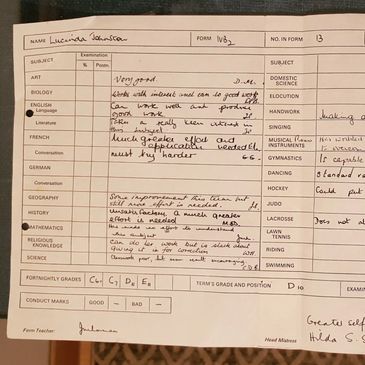 NAME Lucinda Johnston FORM IVB2 NO. IN FORM 13
SUBJECT Examination % Postn. SUBJECT
ART Very good. D.M. DOMESTIC SCIENCE
BIOLOGY Work with interest and can do good work ELOCUTION
ENGLISH Language Can work well and produce good work HANDWORK Making a
Literature Takes a really keen interest in this subject SINGING
FRENCH Much greater effort and application needed MUSICAL INSTRUMENTS
Conversation must try harder G.G. GYMNASTICS Is capable
GERMAN DANCING Standard re
Conversation HOCKEY Could put
GEOGRAPHY Some improvement this term but still more effort is needed. JUDO
HISTORY Unsatisfactory. A much greater effort is needed LACROSSE Does not a
MATHEMATICS no effort to understand this subject LAWN TENNIS
RELIGIOUS KNOWLEDGE Can do her work but is slack about giving it in for correction RIDING
SCIENCE Classwork poor, but more encouraging. SWIMMING
FORTNIGHTLY GRADES C6 C7 D8 E8 TERM'S GRADE AND POSITION D10 EXAMIN
CONDUCT MARKS GOOD — BAD —
Greater self
Form Teacher: Head Mistress Hilda S.